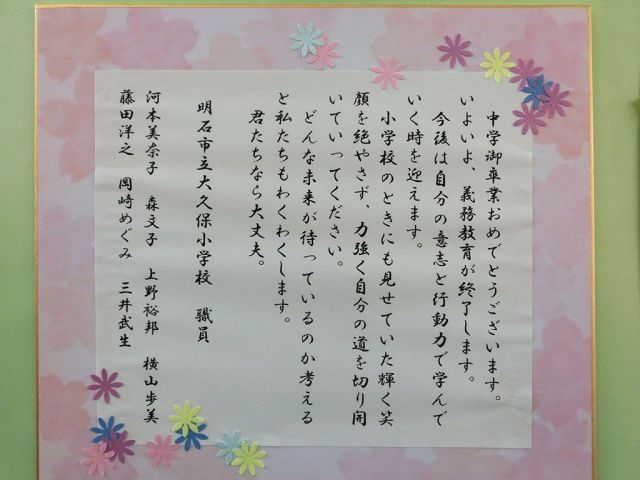 中学御卒業おめでとうございます。
いよいよ、義務教育が終了します。
今後は自分の意志と行動力で学んで
いく時を迎えます。
小学校のときにも見せていた輝く笑
顔を絶やさず、力強く自分の道を切り開
いていってください。
どんな未来が待っているのか考える
と私たちもわくわくします。
君たちなら大丈夫。
明石市立大久保小学校 職員
河本美奈子 森文子 上野裕邦 横山歩美
藤田洋之 岡崎めぐみ 三井武生